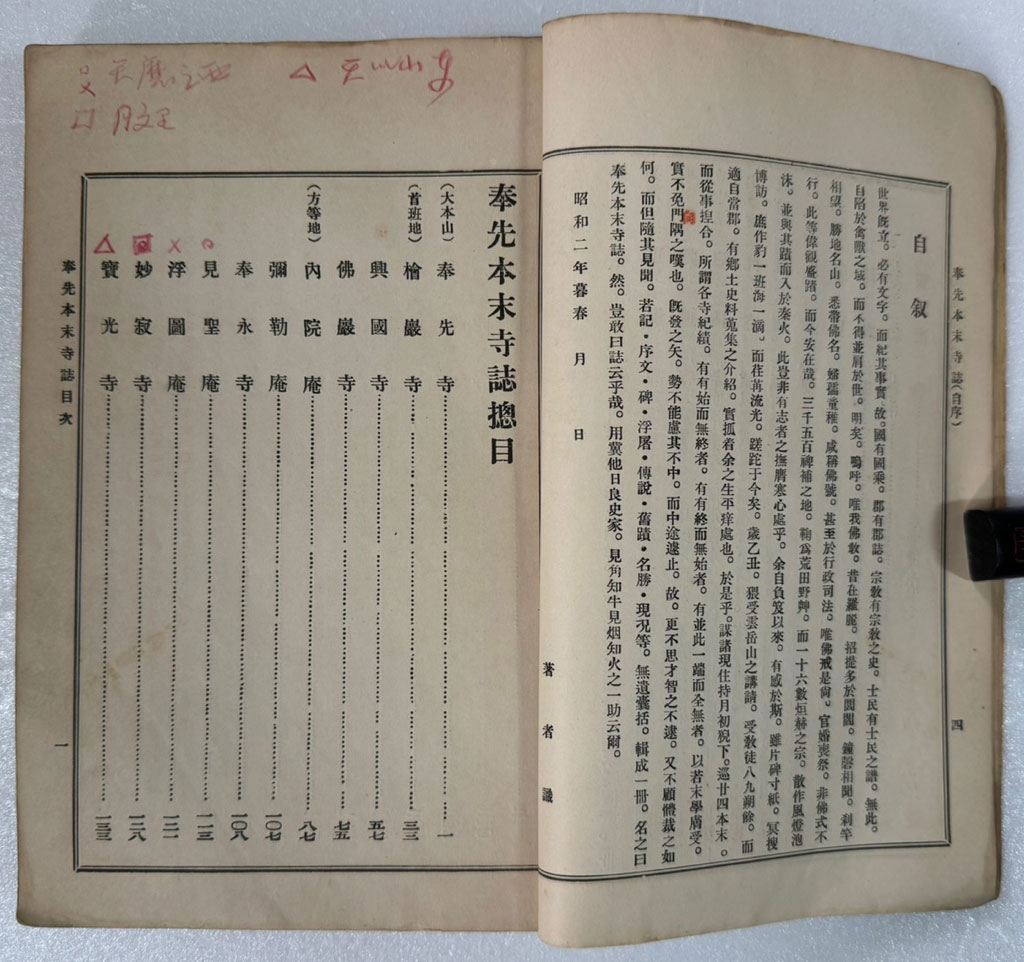 奉先本末寺誌(自序)
四
自叙
世界旣立。必有文字。而紀其事實。故。國有國乘。郡有郡誌。宗敎有宗敎之史。士民有士民之譜。無此。
自陷於禽獸之域。而不得並肩於世。明矣。嗚呼。唯我佛敎。昔在羅麗。招提多於閭閻。鐘磬相聞。刹竿
相望。勝地名山。悉帶佛名。孀孺童稚。咸稱佛號。甚至於行政司法。唯佛戒是尙。官婚喪祭。非佛式不
行。此等偉觀盛蹟。而今安在哉。三千五百裨補之地。鞠爲荒田野艸。而一十六數烜赫之宗。散作風燈泡
沫。並與其蹟而入於秦火。此豈非有志者之撫膺寒心處乎。余自負笈以來。有感於斯。雖片碑寸紙。冥搜
博訪。庶作豹一班海一滴。而荏苒流光。蹉跎于今矣。歲乙丑。猥受雲岳山之講請。受敎徒八九朔餘。而
適自當郡。有鄕土史料蒐集之介紹。實抓着余之生平痒處也。於是乎。謀諸現住持月初稅下。巡廿四本末。
而從事揑合。所謂各寺紀績。有有始而無終者。有有終而無始者。有並此一端而全無者。以若末學膚受。
實不免門隅之嘆也。旣發之矢。勢不能慮其不中。而中途遽止。故。更不思才智之不逮。又不顧體裁之如
何。而但隨其見聞。若記・序文・碑・浮屠・傳說・舊蹟・名勝・現況等。無遺囊括。輯成一冊。名之曰
奉先本末寺誌。然。豈敢曰誌云乎哉。用冀他日良史家。見角知牛見烟知火之一助云爾。
昭和二年暮春 月 日
著者識
奉先本末寺誌摠目
(大本山)奉先寺……一
(首班地)檜巖寺……三三
興國寺……五七
佛巖寺……七五
(方等地)內院庵……八七
彌勒庵……一〇七
奉永寺……一〇八
見聖庵……一一三
浮圖庵……一二一
妙寂寺……一二八
寶光寺……一三三
奉先本末寺誌目次
一